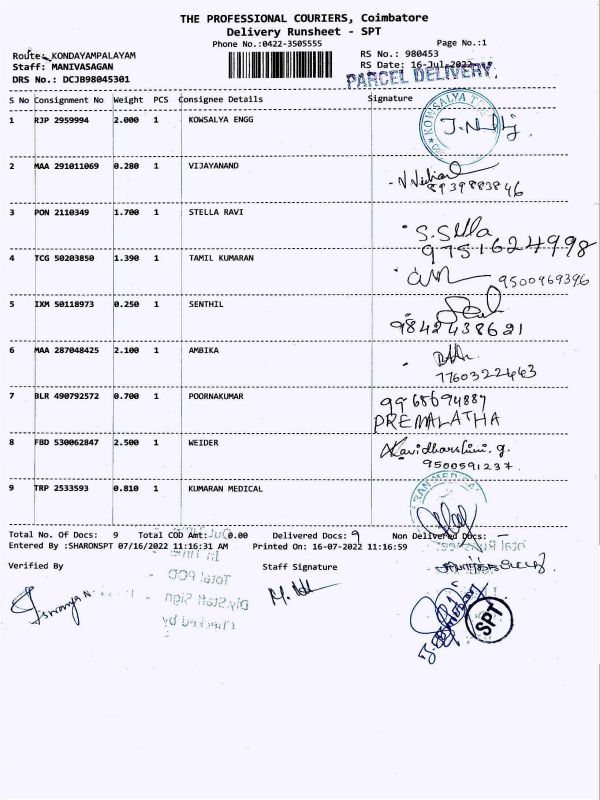 THE PROFESSIONAL COURIERS, Coimbatore
Delivery Runsheet - SPT
Phone No.:0422-3505555 Page No.:1
Route: KONDAYAMPALAYAM RS No.: 980453
Staff: MANIVASAGAN RS Date: 16-Jul-2022
DRS No.: DCJB98045301 PARCEL DELIVERY.
S No Consignment No Weight PCS Consignee Details Signature
1 RJP 2959994 2.000 1 KOWSALYA ENGG
KOWSALYA
2 MAA 291011069 0.280 1 VIJAYANAND
8939883846
3 PON 2110349 1.700 1 STELLA RAVI
S.Stella
9751624998
4 TCG 50203850 1.390 1 TAMIL KUMARAN
9500969396
5 IXM 50118973 0.250 1 SENTHIL
9842438621
6 MAA 287048425 2.100 1 AMBIKA
7760322443
7 BLR 490792572 0.700 1 POORNAKUMAR
9968694887
PREMALATHA
8 FBD 530062847 2.500 1 WEIDER
Kavidharshini. g.
9500591237.
9 TRP 2533593 0.810 1 KUMARAN MEDICAL
Total No. Of Docs: 9 Total COD Amt: 0.00 Delivered Docs: 9 Non Delivered Docs: -
Entered By :SHARONSPT 07/16/2022 11:16:31 AM Printed On: 16-07-2022 11:16:59
In Time
Total POD
Dly.Staff Sign
Checked by
Verified By Staff Signature
SPT